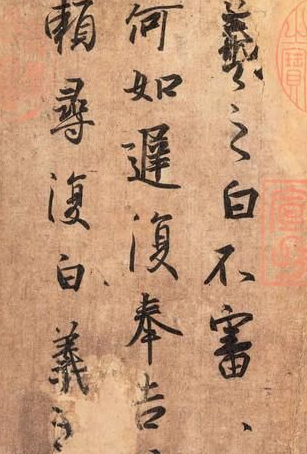 羲之白不審、
何如遲復奉告、
頼尋復白羲之